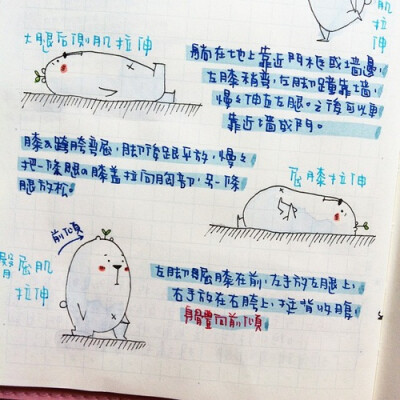 肌
大腿后側肌拉伸
躺在地上靠近門框或墙邊,
左膝稍彎,左脚踵靠墙,
慢々伸直左腿。之後可以更
靠近墙或門。
膝及胯彎屈,脚後跟平放,慢々
把一條腿的膝蓋拉向胸部,另一條
腿放松。
屈膝拉伸
前傾
臀屈肌
拉伸
左脚屈膝在前,左手放左腿上,
右手放在右胯上,挺背收腹,
身體向前傾。